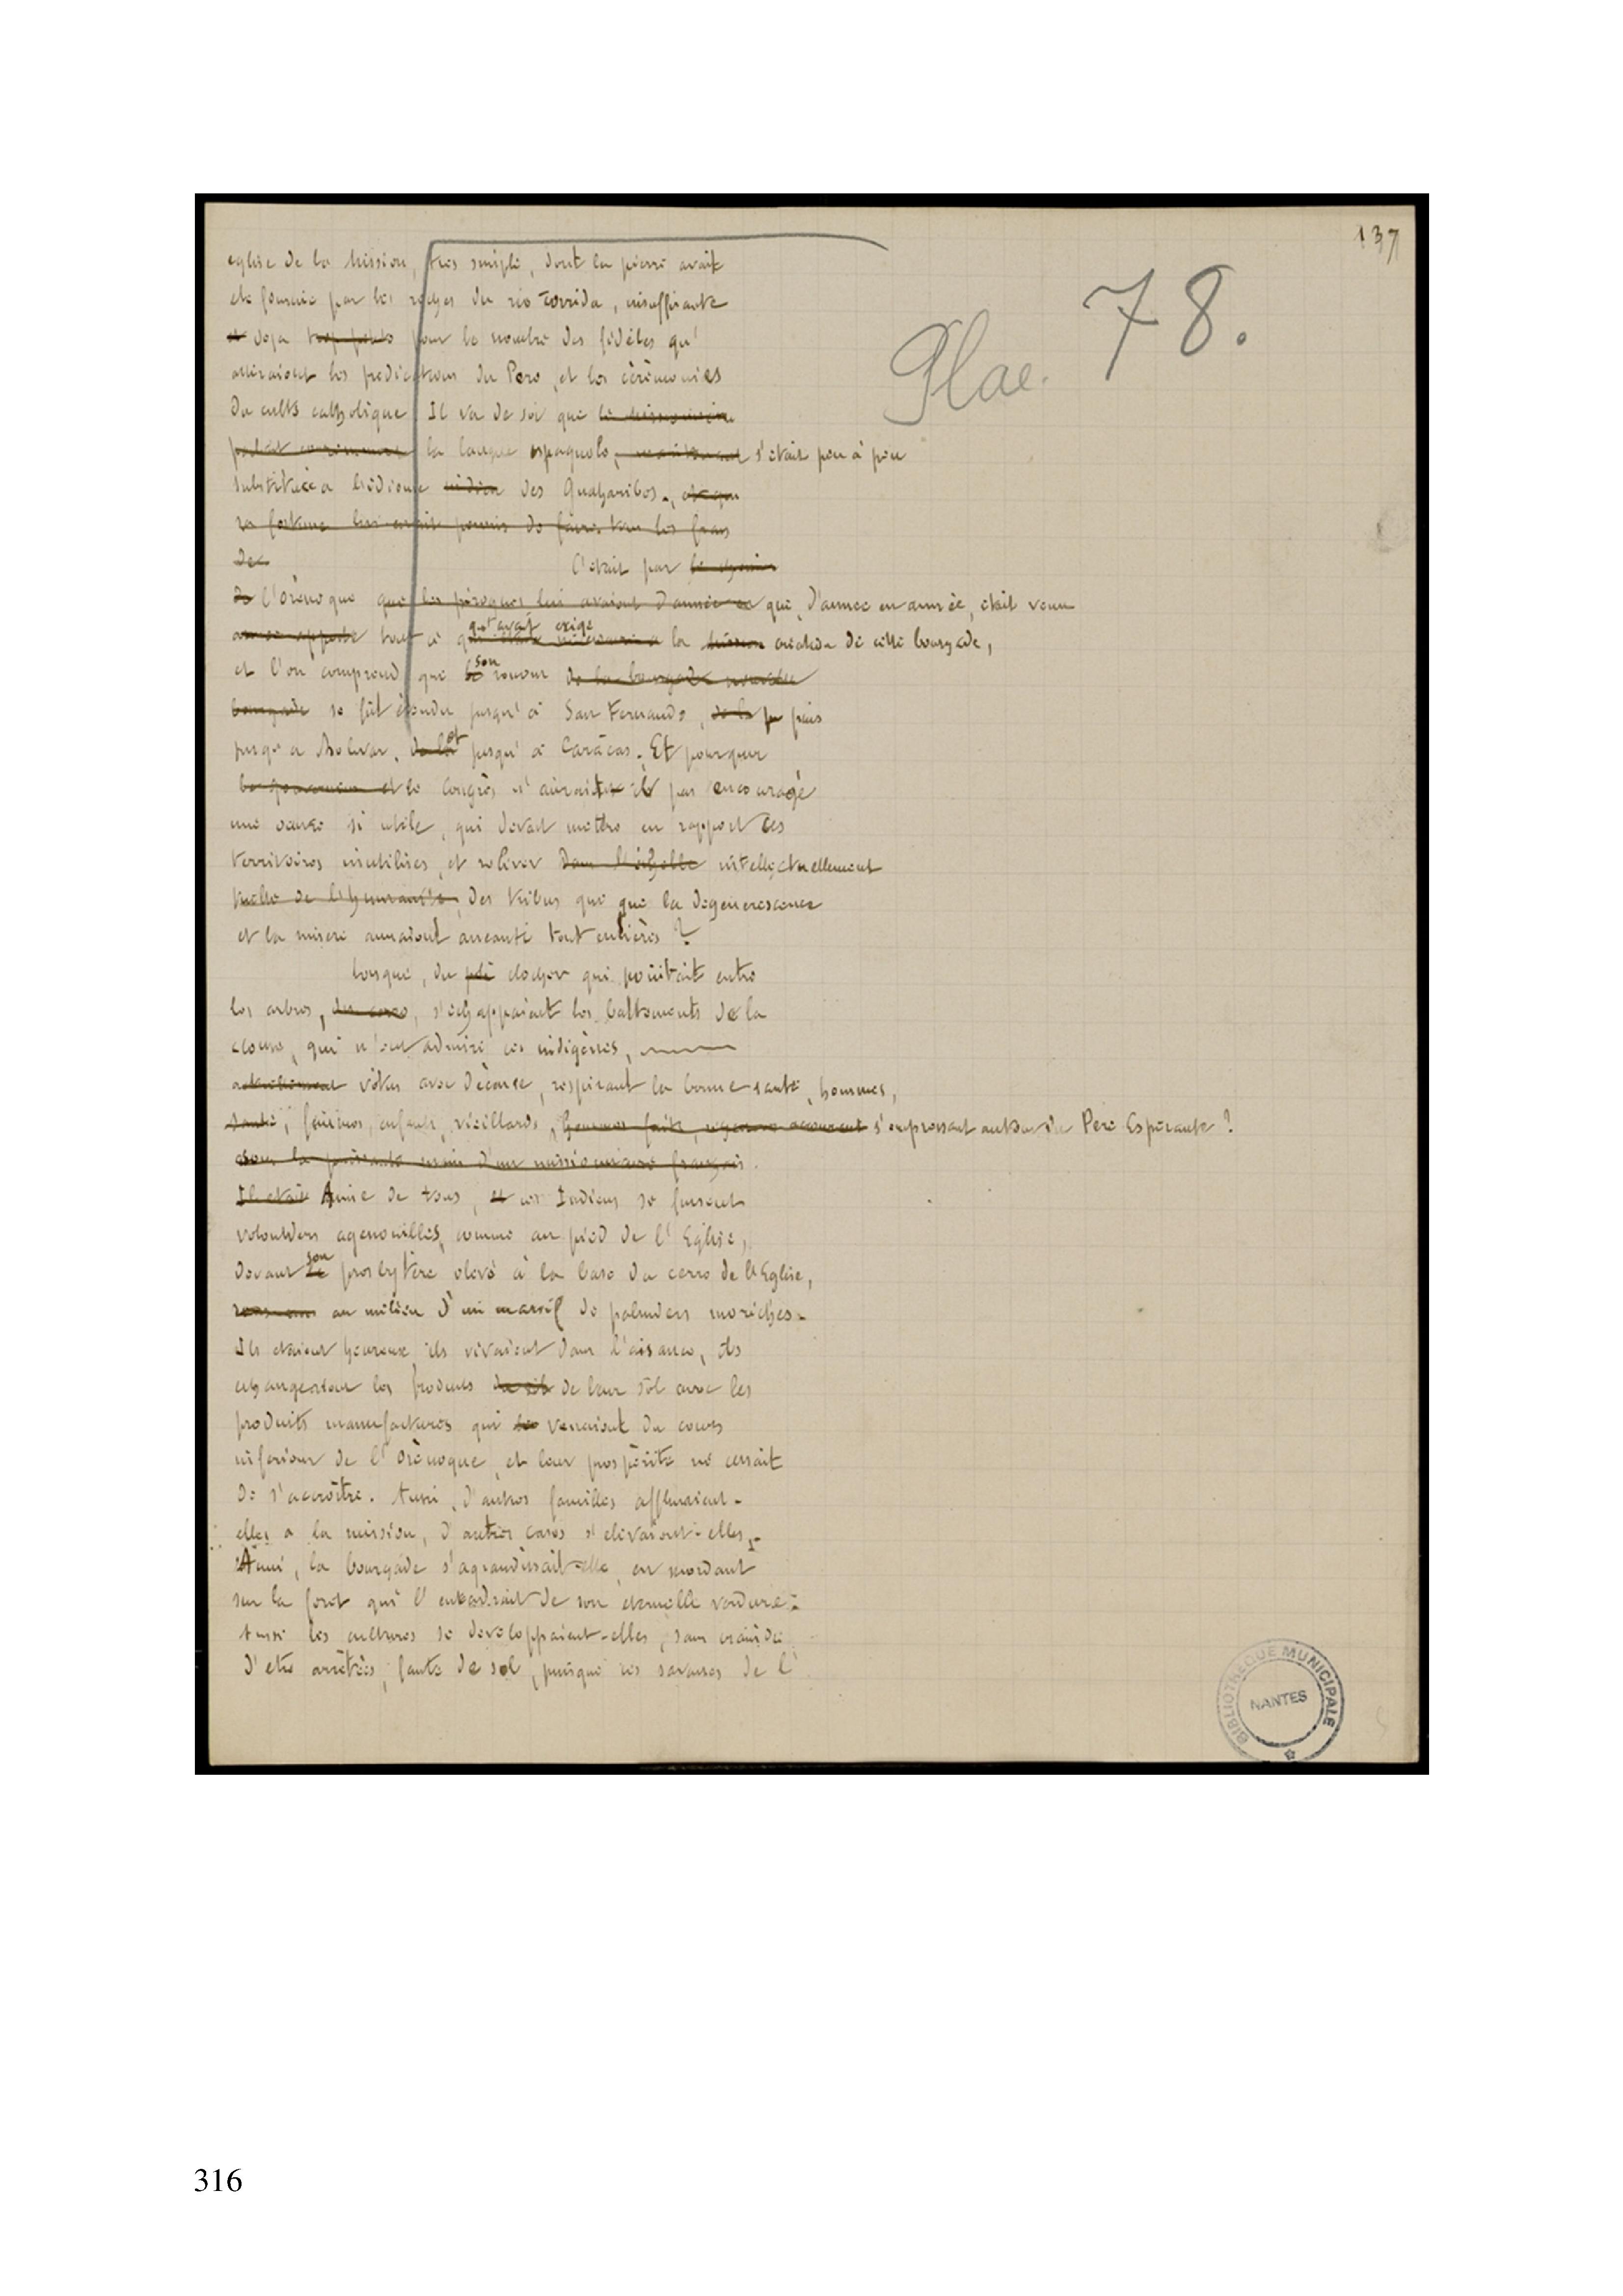 137
78.
Plae.
eglise de la Mission, très simple, dont la pierre avait
été fournie par les roches du rio Torrida, insuffisante
et deja trop petite pour le nombre des fidèles qu'
attiraient les predications du Pere, et les cérémonies
du culte catholique. Il va de soi que le missionnaire
parlait couramment la langue espagnole, s'était peu à peu
substituée a l'idiome indien des Guaharibos.
sa fortune lui avait permis de faire tous les frais
de
C'etait par
de l'Orénoque que les pirogues lui avaient d'année en que, d'annee en année, était venu
qu'avait exigé
tout ce la mission création de cette bourgade,
son
et l'on comprend que le renom de la bourgade nouvelle
bourgade se fût étendu jusqu'à San Fernando, de là puis
et
jusqu'a Bolivar, de là jusqu'à Caracas. Et pourquoi
le congrès n'aurait il pas encouragé
une œuvre si utile, qui devait mettre en rapport ces
territoires inutilisés, et relever dans l'échelle intellectuellement
de l'humanité, des tribus que que la dégénérescence
et la misère auraient anéanti tout entières ?
Lorsque, du clocher qui pointait entre
les arbres, du cerro, s'échappaient les battements de la
cloche, qui n'eut admiré ces indigènes,
vêtus avec décence, respirant la bonne santé, hommes,
santé, femmes, enfants, vieillards, s'empressant autour du Pere Esperante ?
sous la puissante main d'un missionnaire français.
Il etait Amie de tous, et ces Indiens se fussent
volontiers agenouillés, comme au pied de l'Eglise,
son
devant le presbytère élevé à la base du cerro de l'Eglise,
au milieu d'un massif de palmiers moriches.
Ils etaient heureux, ils vivaient dans l'aisance, ils
echangeaient les produits du sol de leur sol avec les
produits manufacturés qui venaient du cours
inferieur de l'Orénoque, et leur prospérité ne cessait
de s'accroître. Aussi, d'autres familles affluaient-
elles a la mission, d'autres cases s'élevaient-elles,
Aussi, la bourgade s'agrandissait-elle, en mordant
sur la foret qui l'encadrait de son eternelle verdure.
Aussi les cultures se développaient-elles, sans crainte
d'etre arrêtées, faute de sol, puisque les savanes de l'
BIBLIOTHEQUE MUNICIPALE
NANTES
316